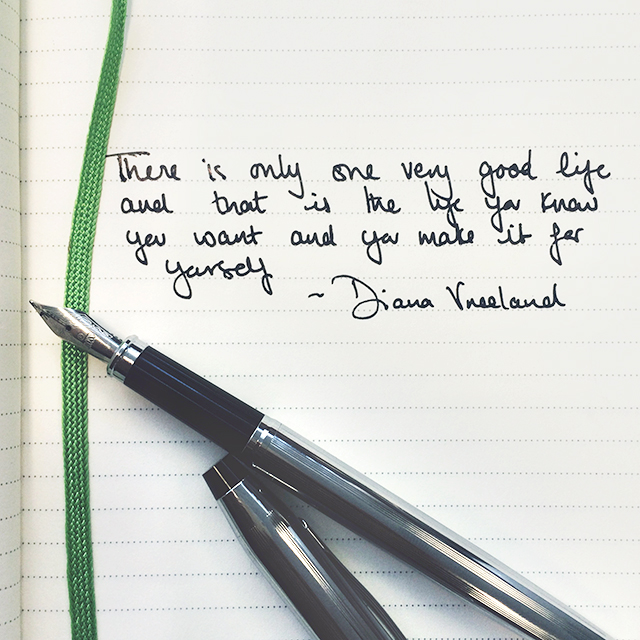 There is only one very good life
and that is the life you know
you want and you make it for
yourself
~ Diana Vreeland